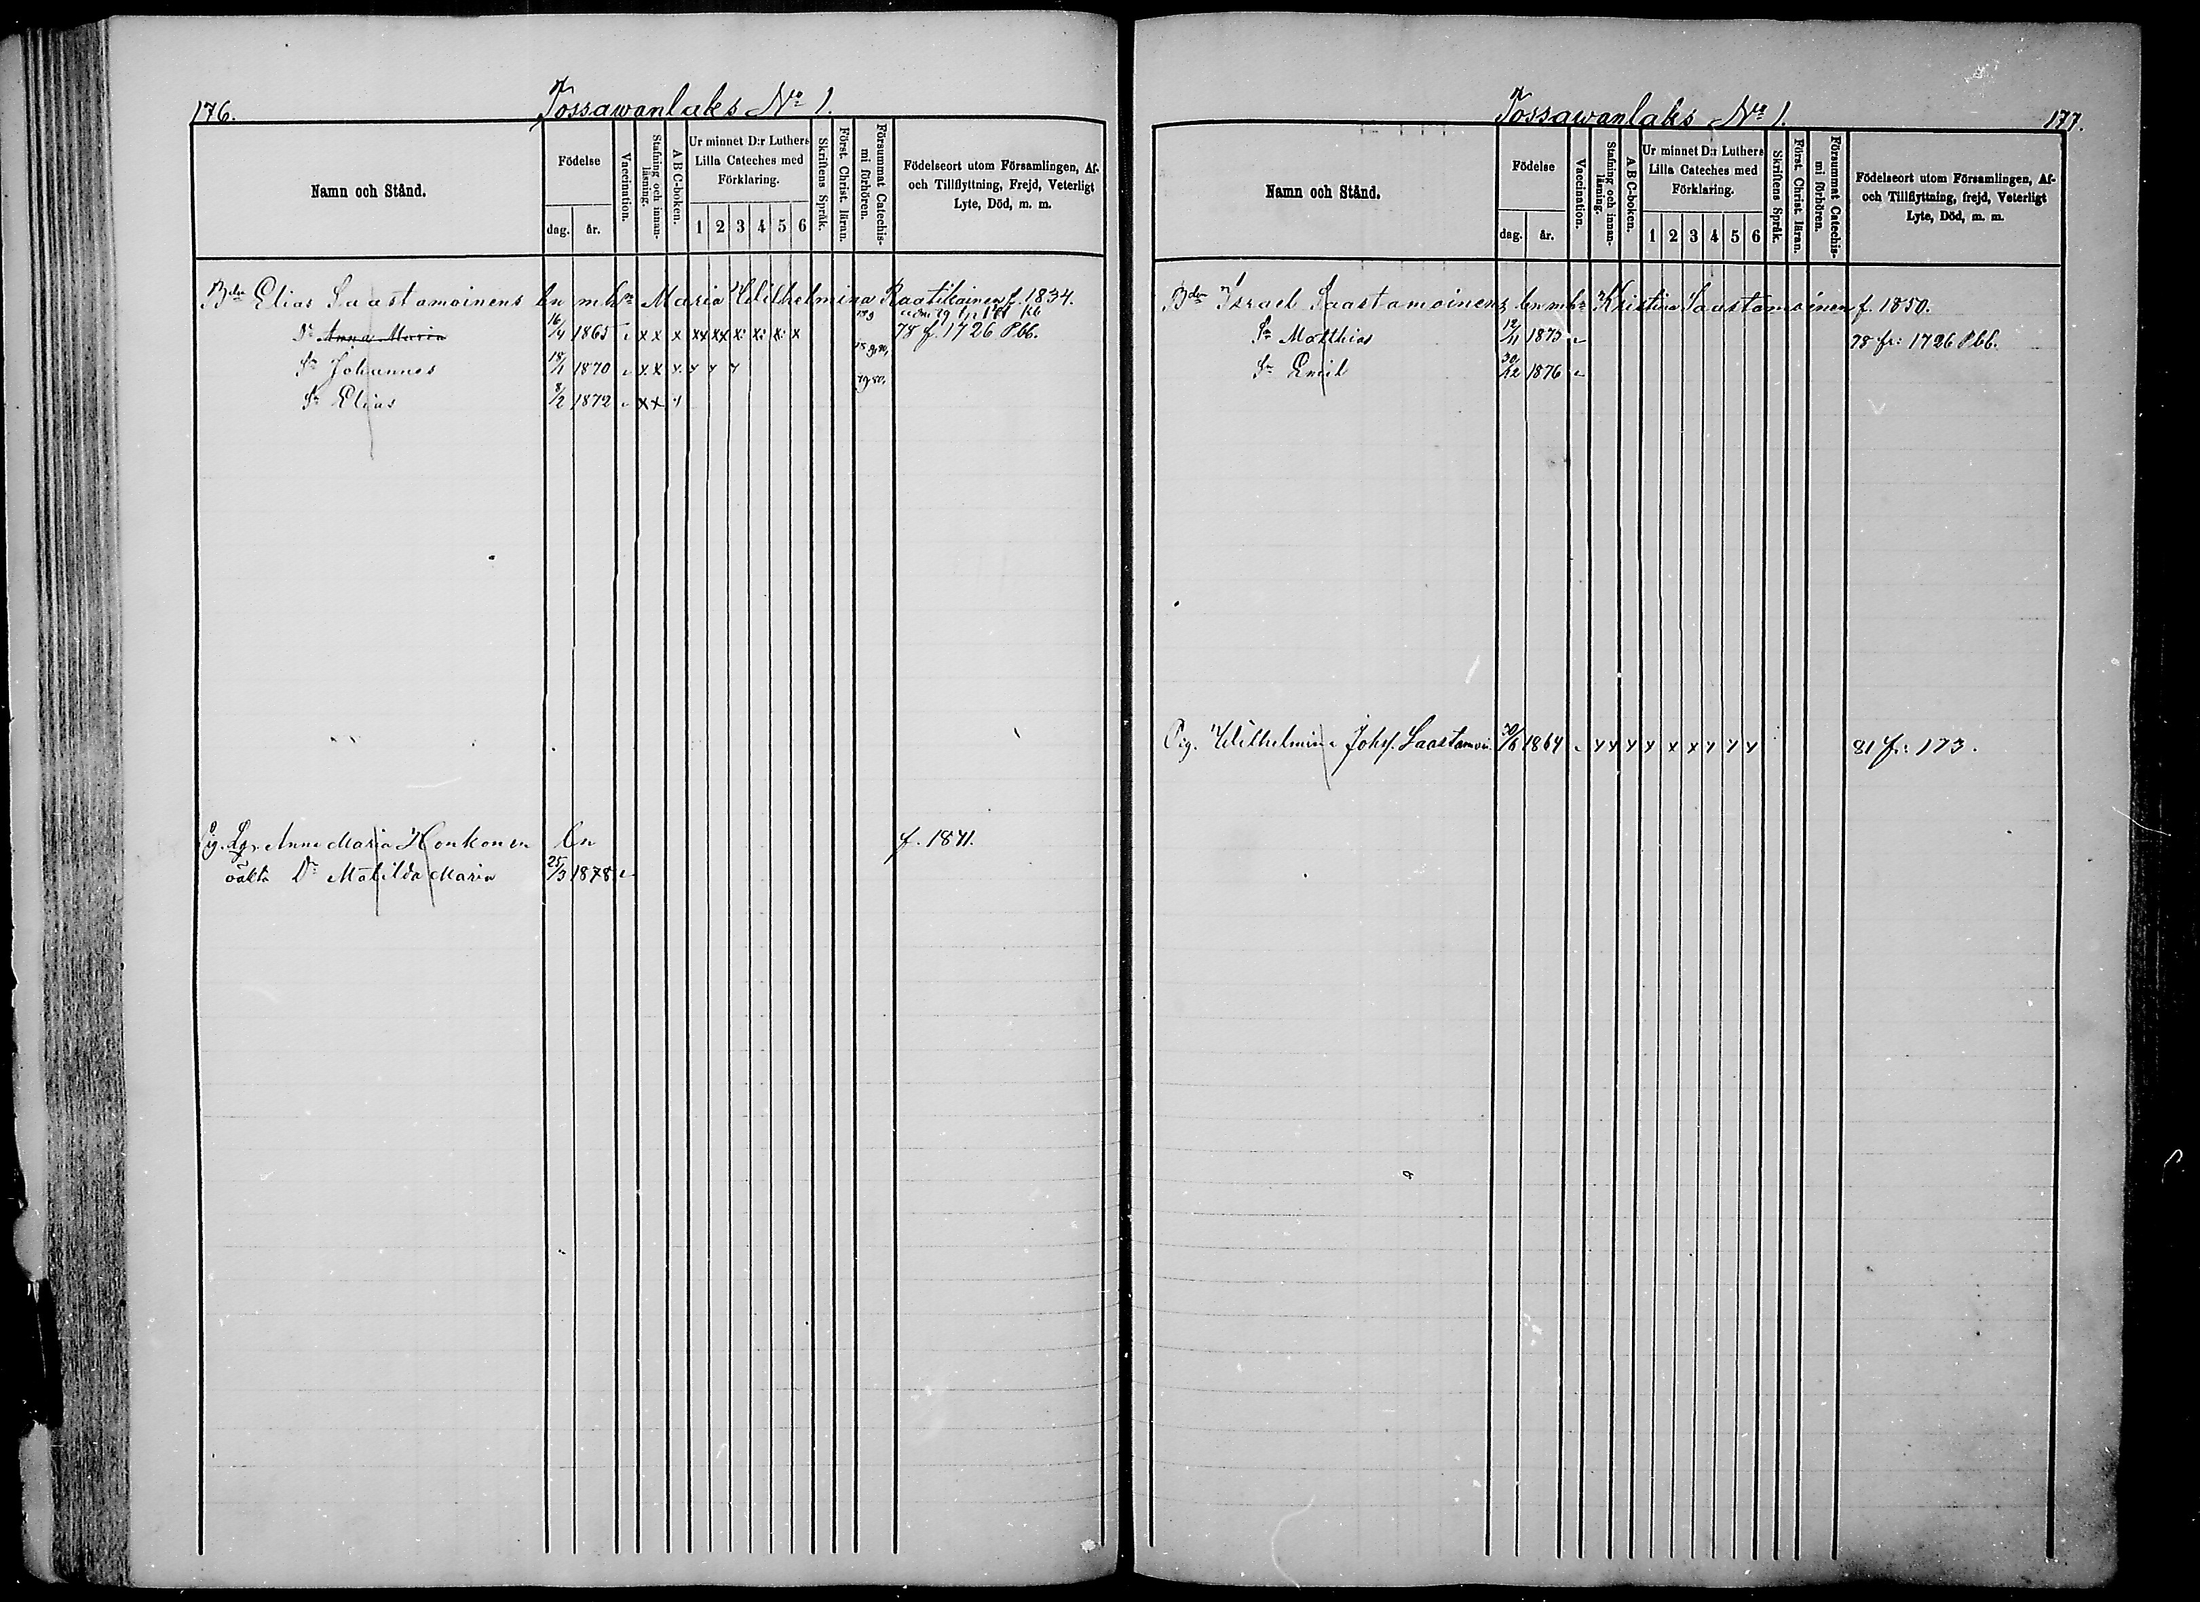 176.
Tossawanlaks No 1.
Namn och Stånd.
Födelse
dag.
år.
Vaccination.
Stafning och innan-
läsning.
A B C-boken.
Ur minnet D:r Luthers
Lilla Cateches med
Förklaring.
1 2 3 4 5 6
Skriftens Språk.
Först. Christ. läran.
Försummat Catechis-
mi förhören.
Födelseort utom Församlingen, Af-
och Tillflyttning, Frejd, Veterligt
Lyte, Död, m. m.
Bdn Elias Saastamoinens bn m. hn Maria Wilhelmina Raatikainen f. 1834.
Dr Anna Maria 16/4 1865 x x x xx xx x: x: x: x 78 f. 1726 Pbb.
Sn Johannes 18/1 1870 x x x x x x
Sn Elias 8/2 1872 x x x
Pig. Anna Maria Honkonen bn f. 1841.
oäkta Dr Matilda Maria 25/3 1878
Tossawanlaks No 1.
177.
Namn och Stånd.
Födelse
dag.
år.
Vaccination.
Stafning och innan-
läsning.
A B C-boken.
Ur minnet D:r Luthers
Lilla Cateches med
Förklaring.
1 2 3 4 5 6
Skriftens Språk.
Först. Christ. läran.
Försummat Catechis-
mi förhören.
Födelseort utom Församlingen, Af-
och Tillflyttning, frejd, Veterligt
Lyte, Död, m. m.
Bdn Israel Saastamoinens bn m hn Kristina Saastamoinen f. 1850.
Sn Matthias 12/11 1873 78 fr: 1726 Pbb.
Sn Emil 30/12 1876
Pig. Wilhelmina Johs. Saastamoi. 30/6 1864 x x x x x x x x x 81 fr: 173.